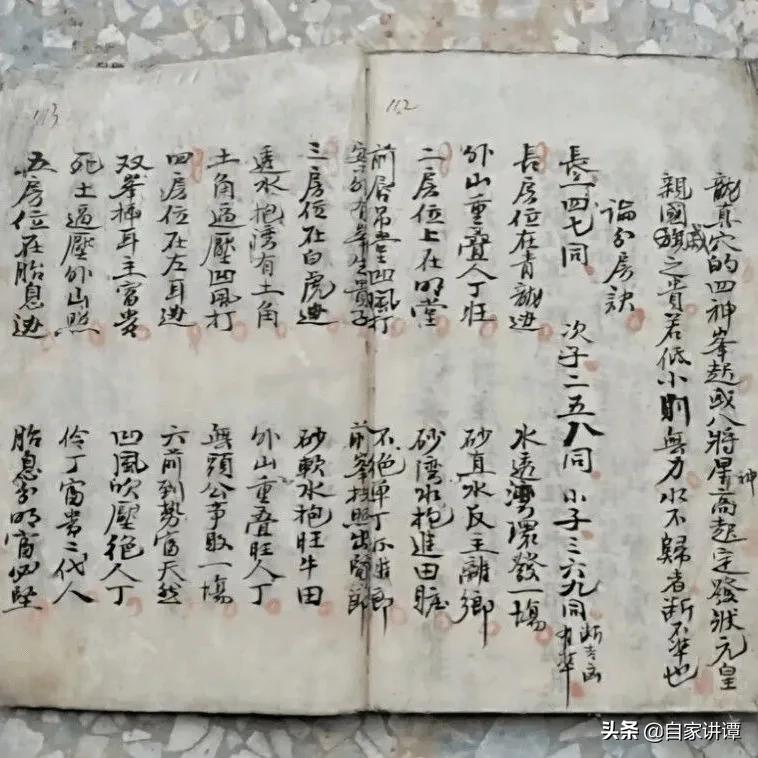 112
龍真穴的四神峯起或八將星高起定發狀元皇
親國戚之貴若低小則無力水不歸者断不準也
神
論分房訣
長一四七同 次子二五八同 小子三六九同
断吉凶
有準
長房位在青龍边 水透灣環發一塲
外山重叠人丁旺 砂直水反主離鄉
二房位上在明堂 砂灣水抱進田庄
前唇吊 凹風打 不絕单丁 鄉
案外有峯生貴子 前峯拱照出賢郎
113
三房位在白虎边 砂軟水抱旺牛田
透水抱湾有土角 外山重叠旺人丁
土角逼壓凹風打 無頭公事敗一塲
四房位在左耳边 六前到势富天然
双峯插耳主富贵 凹風吹壓絕人丁
死土逼壓外山照 伶丁富贵二代人
五房位在胎息边 胎息分明富必堅
头条 @自家讲谭